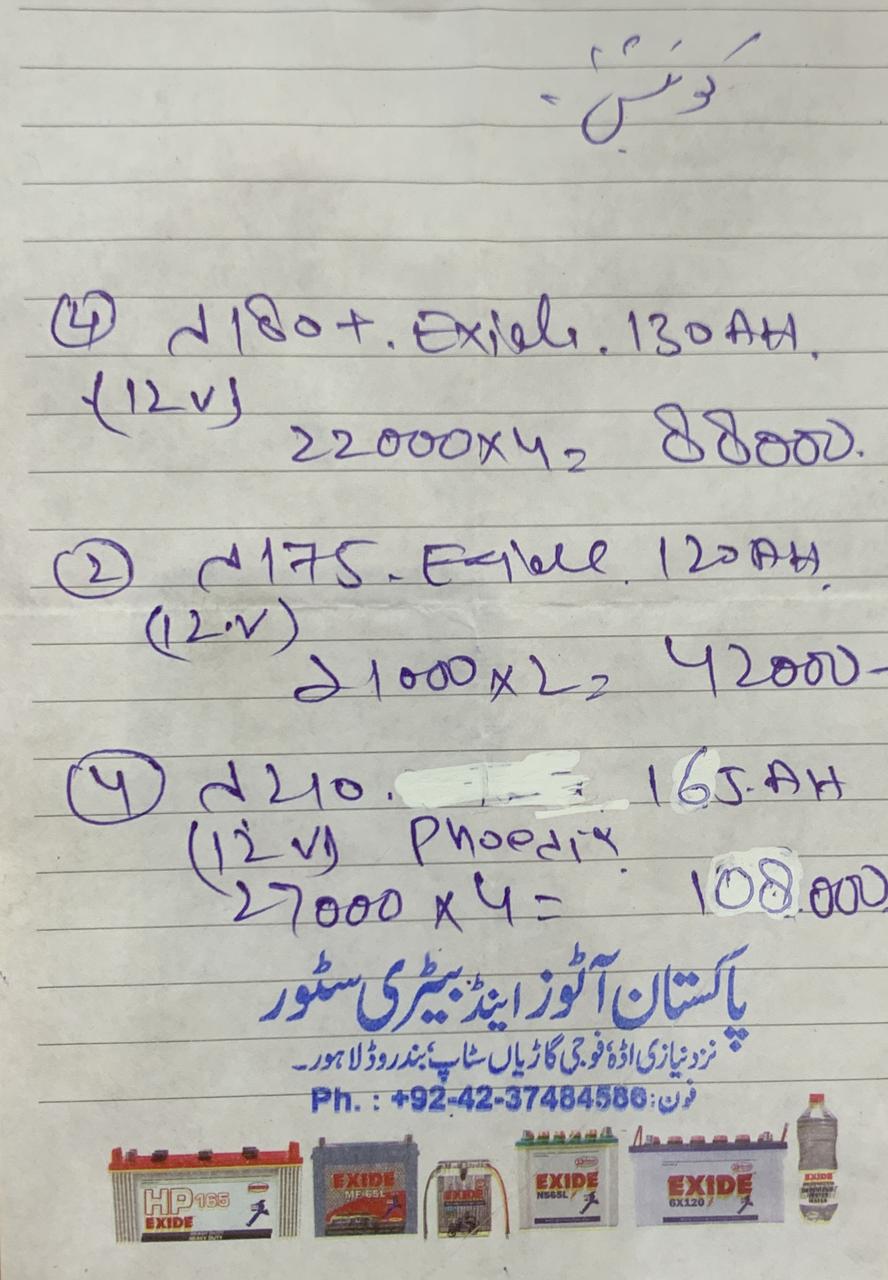 کوٹیشن
④ N180+. Exide. 130AH.
(12V)
22000x4= 88000.
② N175. Exide. 120AH.
(12.V)
21000x2= 42000-
④ N210. 165.AH
(12V) Phoenix.
27000x4= 108.000
پاکستان آٹوز اینڈ بیٹری سٹور
نزد نیازی اڈہ فوجی گاڑیاں سٹاپ، بندروڈ لاہور۔
Ph. : +92-42-37484586 :فون
HP 165
EXIDE
HEAVY DUTY
EXIDE
MF 65L
EXIDE
EXIDE
NS65L
EXIDE
6X120
EXIDE
WATER